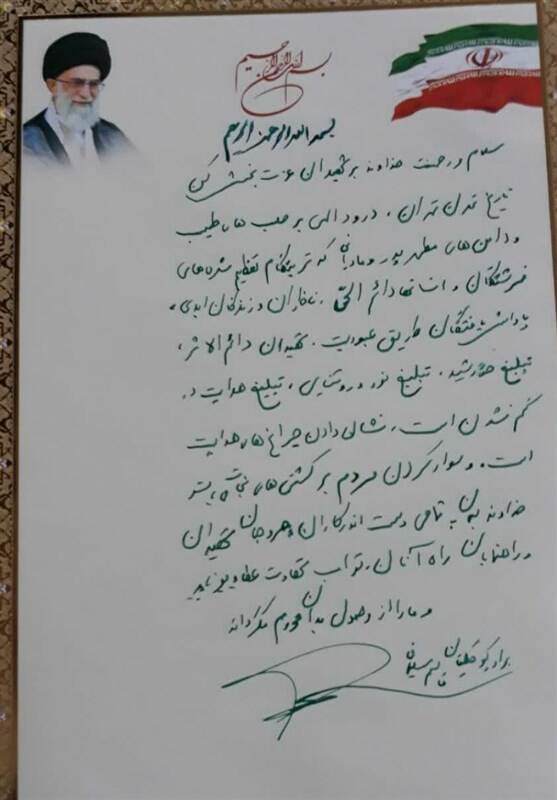 بسم الله الرحمن الرحیم
بسمه الله الرحمن الرحیم
سلام و رحمت خداوند بر شهیدان عزت بخش کن
تاریخ تمدن تهران، درود الهی بر صلب های طیب
و دامن های مطهر پدر و مادرانی که تربیتگاه
فرشتگان و انسانهای دائم الحی،
طریق عبودیت. شهیدان دائم الاثر،
تبلیغ خورشید، تبلیغ نور و روشنایی، تبلیغ هدایت در
گم نشدن است. نشانی دادن چراغ های هدایت
است. و سوار کردن مردم بر کشتی های نجات بشر
خداوند به تمامی دست اندرکاران شهیدان
و راهنمایان راه آنان، ثواب شهادت عطا بفرماید
و ما را از وصول به آن محروم نگرداند
برادر کوچکتان قاسم سلیمانی